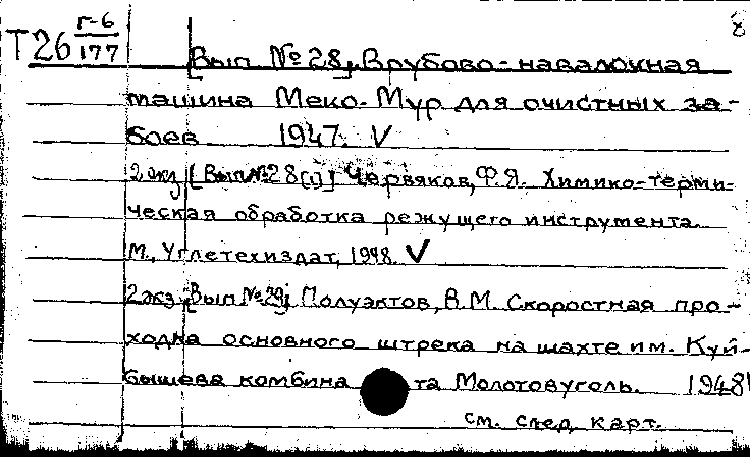 8
Т26 Г-6/177
[Вып. № 28], Врубово-навалочная
машина Меко-Мур для очистных за-
боев 1947. V
2 экз [Вып № 28(1)] Червяков, Ф.Я. Химико-терми-
ческая обработка режущего инструмента.
М., Углетехиздат, 1948. V
2 экз. [Вып № 29] Полуэктов, В.М. Скоростная про-
ходка основного штрека на шахте им. Куй-
бышева комбината Молотовуголь. 1948
см. след. карт.